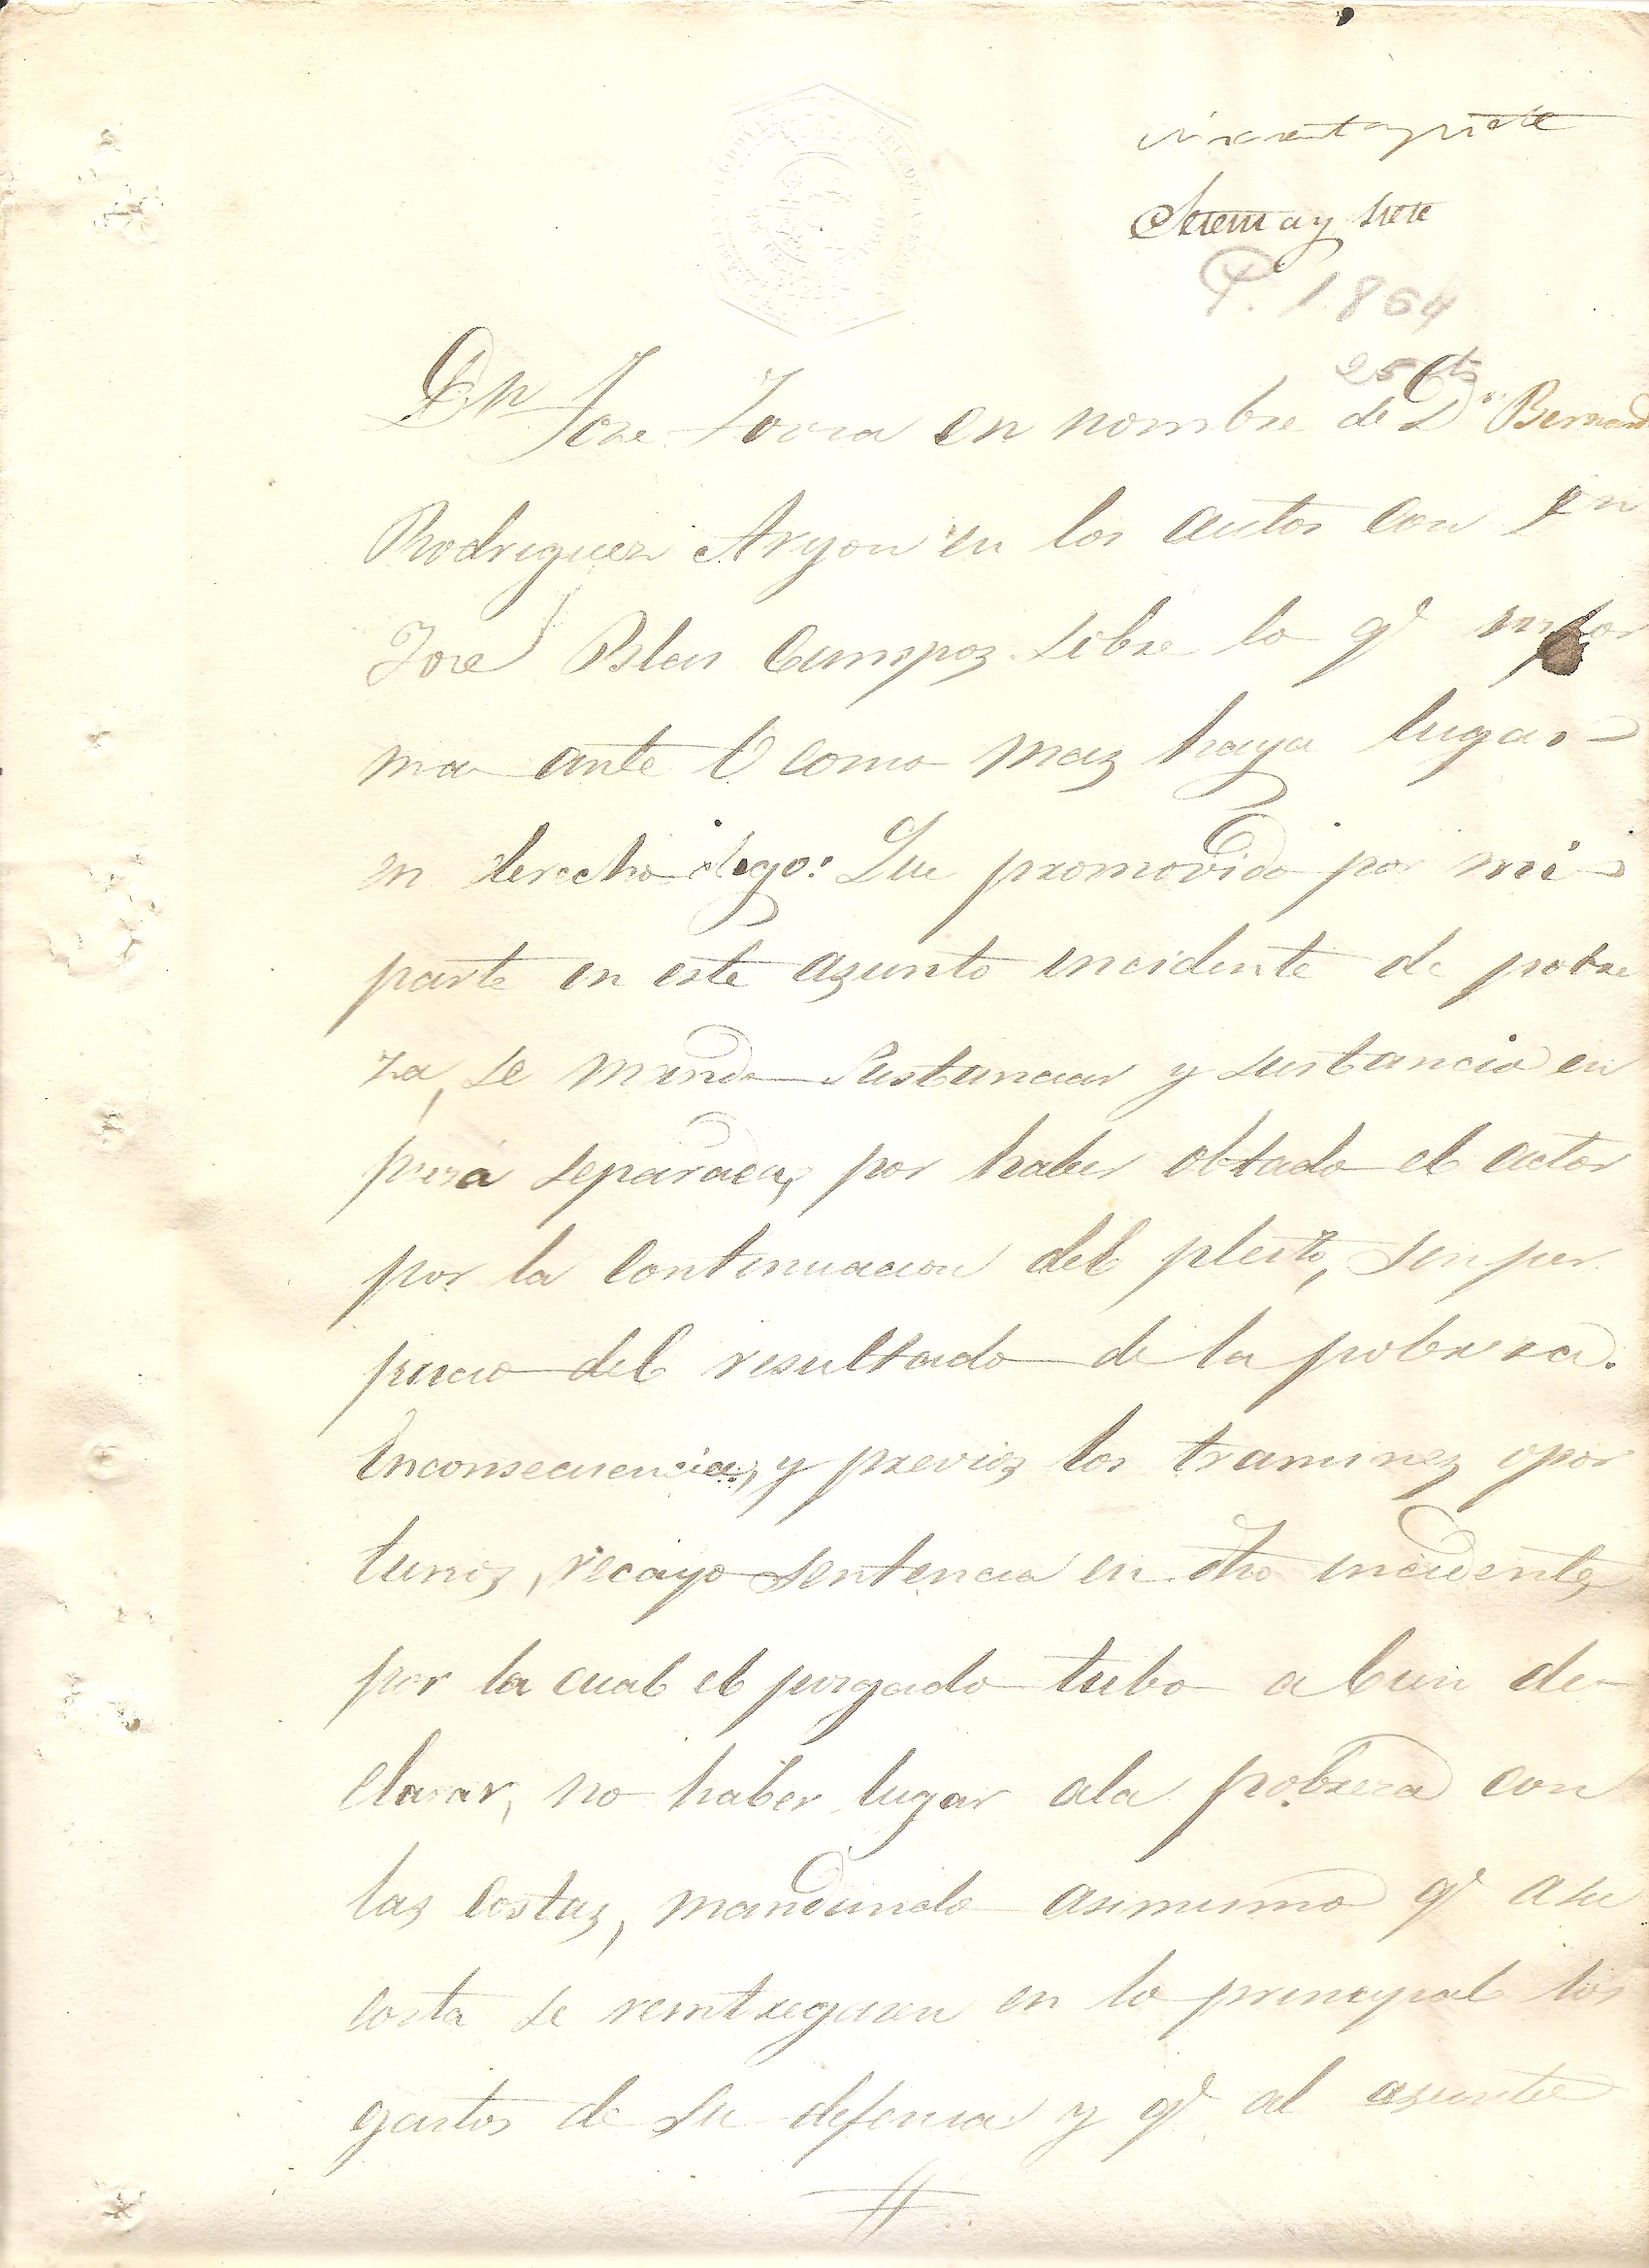 Setenta y siete
P. 1864
Dn Jose Jovra en nombre de Dn Bernard
Rodriguez Aryon en los autos con Dn
Jose Blas Campoz sobre lo qe
ma ante V como maz haya lugar
en derecho digo: Que promovido por mi
parte en este azunto incidente de pobre
za, se mando sustanciar y sustancio en
pieza separada, por haber obtado el actor
por la continuacion del pleito, sin per
juicio del resultado de la pobreza.
Enconsecuencia, y previoz los traminez opor
tunoz, recayo sentencia en dho incidente,
por la cual el juzgado tubo a bien de-
clarar, no haber lugar ala pobreza con
laz costaz, mandando asimismo qe a su
costa se reintregaran en lo principal los
gastos de su defensa y qe al asunto